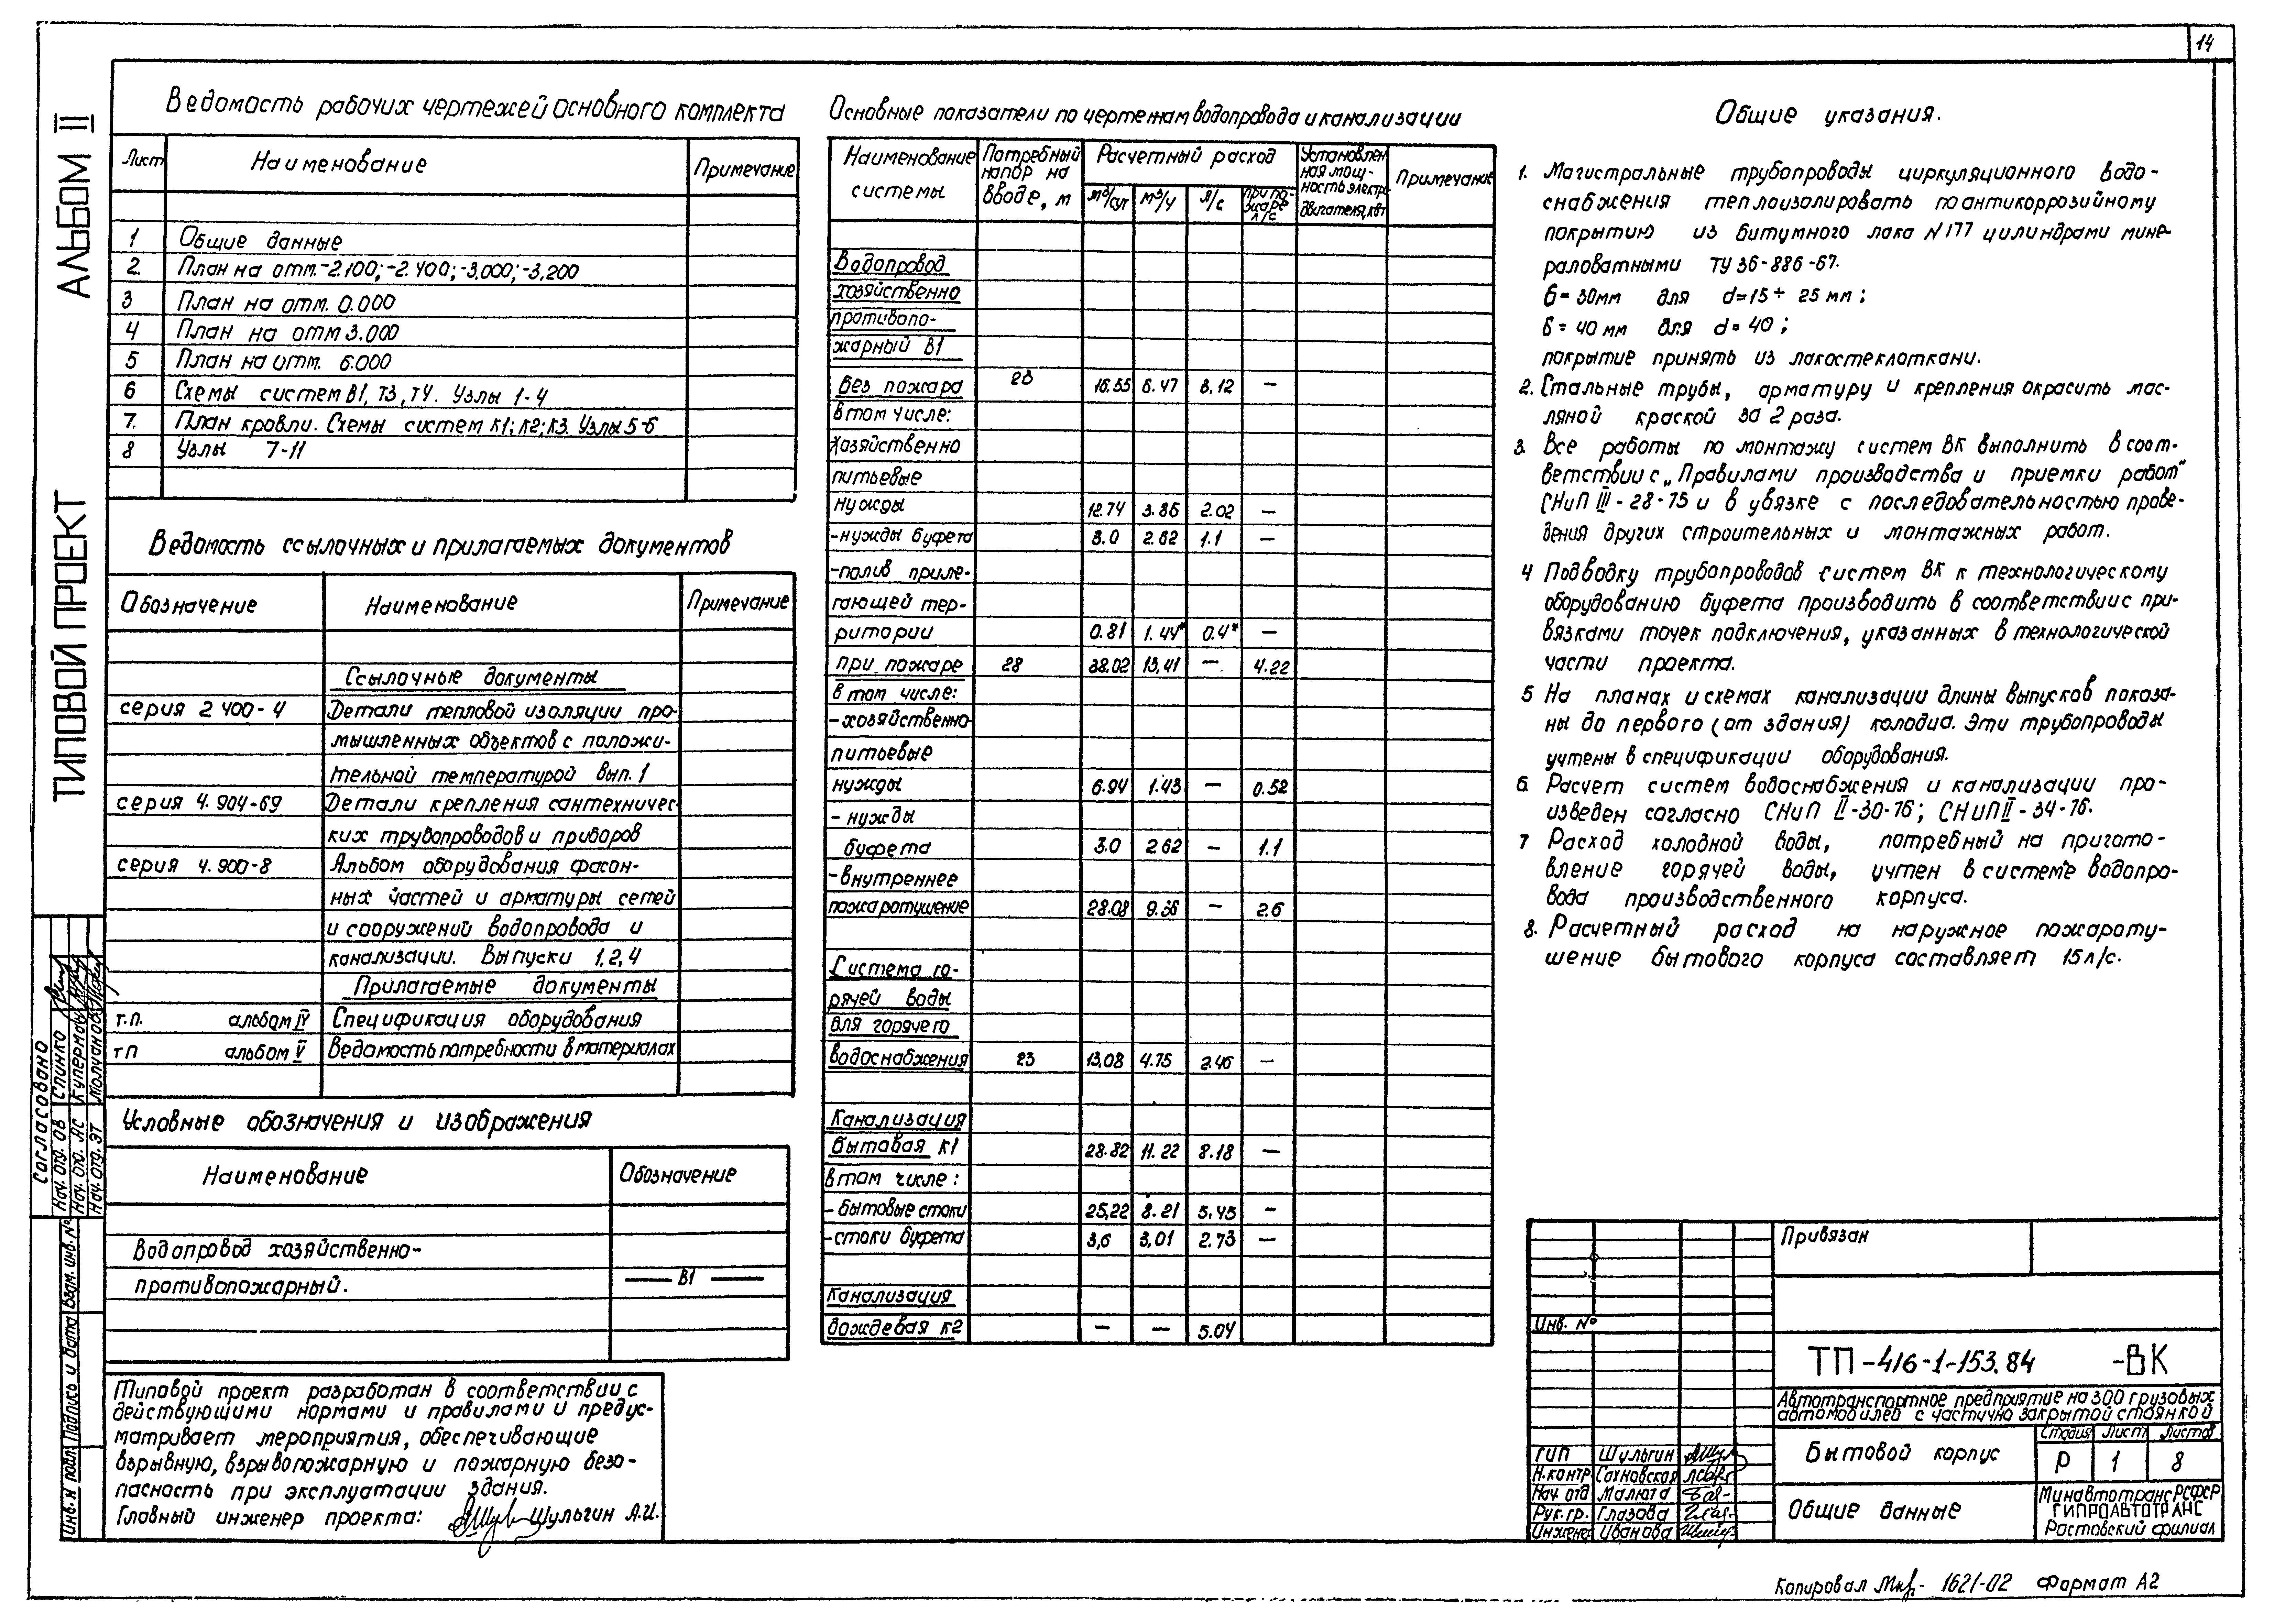 14
АЛЬБОМ II
ТИПОВОЙ ПРОЕКТ
Ведомость рабочих чертежей основного комплекта
Лист Наименование Примечание
1 Общие данные
2. План на отм.-2.100;-2.400;-3.000;-3,200
3 План на отм. 0.000
4 План на отм 3.000
5 План на отм. 6.000
6 Схемы систем В1, Т3, Т4. Узлы 1-4
7. План кровли. Схемы систем К1; К2; К3. Узлы 5-6
8 Узлы 7-11
Ведомость ссылочных и прилагаемых документов
Обозначение Наименование Примечание
Ссылочные документы
серия 2 400-4 Детали тепловой изоляции про-
мышленных объектов с положи-
тельной температурой вып. 1
серия 4.904-69 Детали крепления сантехничес-
ких трубопроводов и приборов
серия 4.900-8 Альбом оборудования фасон-
ных частей и арматуры сетей
и сооружений водопровода и
канализации. Выпуски 1,2,4
Прилагаемые документы
т.п. альбом IV Спецификация оборудования
тп альбом V Ведомость потребности в материалах
Условные обозначения и изображения
Наименование Обозначение
Водопровод хозяйственно-
противопожарный. В1
Типовой проект разработан в соответствии с
действующими нормами и правилами и предус-
матривает мероприятия, обеспечивающие
взрывную, взрывопожарную и пожарную безо-
пасность при эксплуатации здания.
Главный инженер проекта: Шульгин А.И.
Согласовано
Нач. отд. ОВ Слинко
Нач. отд. АС Куперман
Нач. отд. ЭТ Молчанов
Инв. № подл. Подпись и дата Взам. инв. №
Основные показатели по чертежам водопровода и канализации
Наименование системы Потребный напор на вводе, м Расчетный расход Установлен-ная мощ-ность электро-двигателя, квт Примечание
м³/сут м³/ч л/с при по-жаре л/с
Водопровод
хозяйственно
противопо-
жарный В1
без пожара 23 16.55 6.47 3,12 —
в том числе:
хозяйственно
питьевые
нужды 12.74 3.85 2.02 —
-нужды буфета 3.0 2.62 1.1 —
-полив приле-
гающей тер-
ритории 0.81 1.44* 0.4* —
при пожаре 28 38.02 13,41 — 4.22
в том числе:
-хозяйственно-
питьевые
нужды 6.94 1.43 — 0.52
- нужды
буфета 3.0 2.62 — 1.1
-внутреннее
пожаротушение 28.08 9.36 — 2.6
Система го-
рячей воды
для горячего
водоснабжения 23 13,08 4.75 2.46 —
Канализация
бытовая К1 28.82 11.22 8.18 —
в том числе:
- бытовые стоки 25,22 8.21 5.45 —
-стоки буфета 3,6 3,01 2.73 —
Канализация
дождевая К2 — — 5.04
Общие указания.
1. Магистральные трубопроводы циркуляционного водо-
снабжения теплоизолировать по антикоррозийному
покрытию из битумного лака N177 цилиндрами мине-
раловатными ТУ 36-886-67.
б=30мм для d=15÷25 мм;
б=40 мм для d=40;
покрытие принять из лакостеклоткани.
2. Стальные трубы, арматуру и крепления окрасить мас-
ляной краской за 2 раза.
3. Все работы по монтажу систем ВК выполнить в соот-
ветствии с „Правилами производства и приемки работ"
СНиП III-28-75 и в увязке с последовательностью прове-
дения других строительных и монтажных работ.
4 Подводку трубопроводов систем ВК к технологическому
оборудованию буфета производить в соответствии с при-
вязками точек подключения, указанных в технологической
части проекта.
5 На планах и схемах канализации длины выпусков показа-
ны до первого (от здания) колодца. Эти трубопроводы
учтены в спецификации оборудования.
6. Расчет систем водоснабжения и канализации про-
изведен согласно СНиП II-30-76; СНиП II-34-76.
7 Расход холодной воды, потребный на пригото-
вление горячей воды, учтен в системе водопро-
вода производственного корпуса.
8. Расчетный расход на наружное пожароту-
шение бытового корпуса составляет 15л/с.
Привязан
Инв. №
ТП-416-1-153.84 -ВК
Автотранспортное предприятие на 300 грузовых
автомобилей с частично закрытой стоянкой
ГИП Шульгин
Н.контр. Сахновская
Нач. отд Малюга
Рук.гр. Глазова
Инженер Иванова
Бытовой корпус
Стадия Лист Листов
Р 1 8
Общие данные
Минавтотранс РСФСР
ГИПРОАВТОТРАНС
Ростовский филиал
Копировал 1621-02 Формат А2